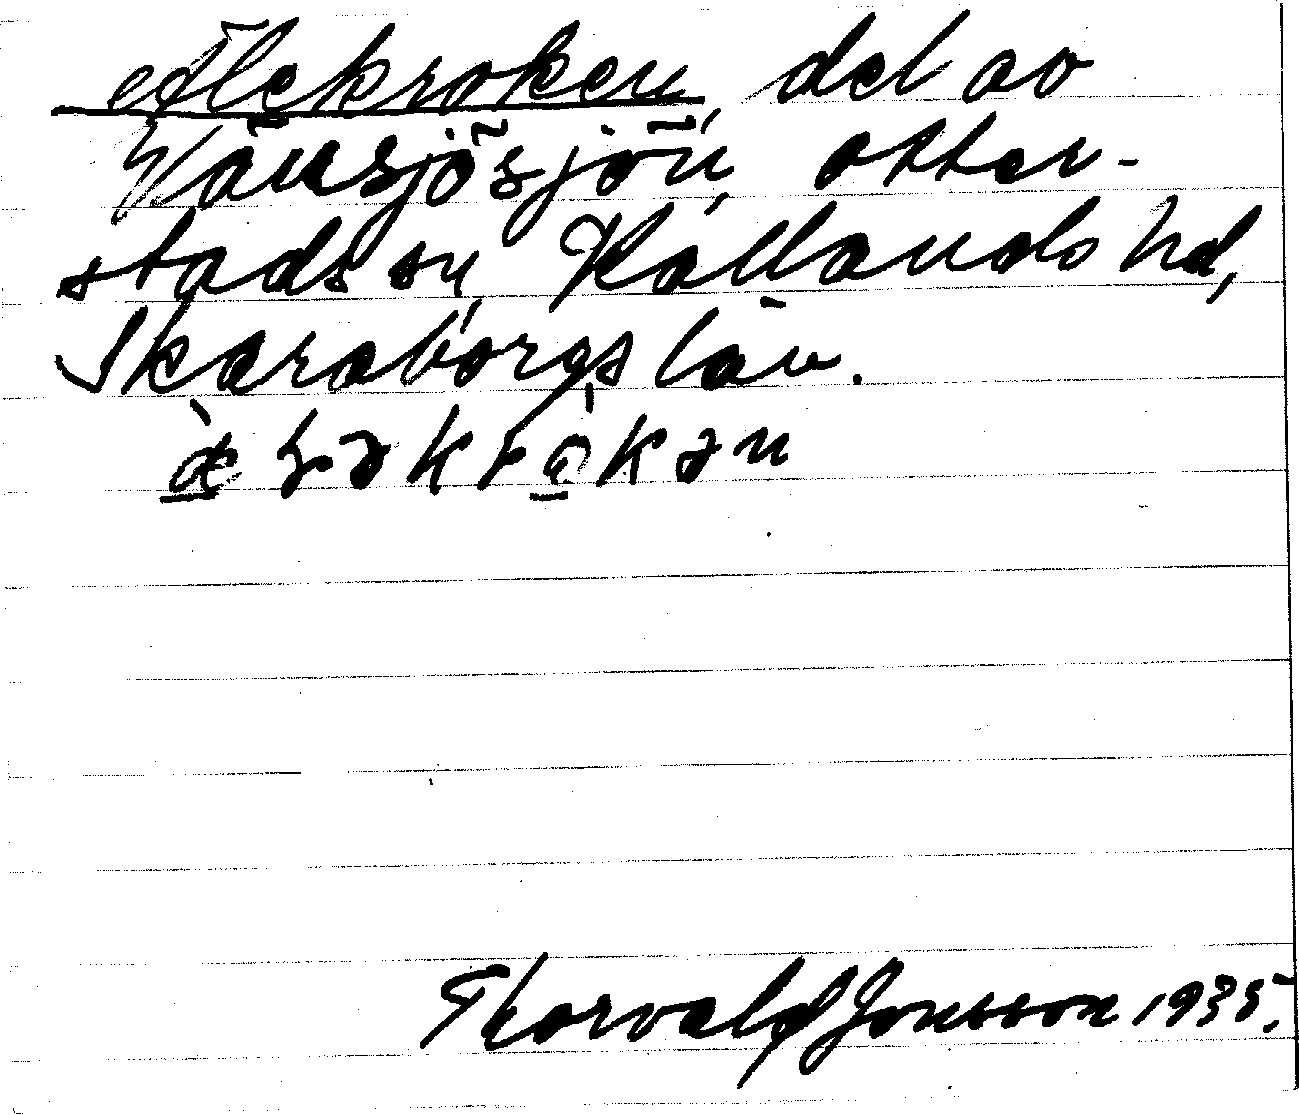 Älekroken, del av
Vänsjösjön, Otter-
stads sn, Kållands hd,
Skaraborgs län.
Thorvald Jonsson 1935.